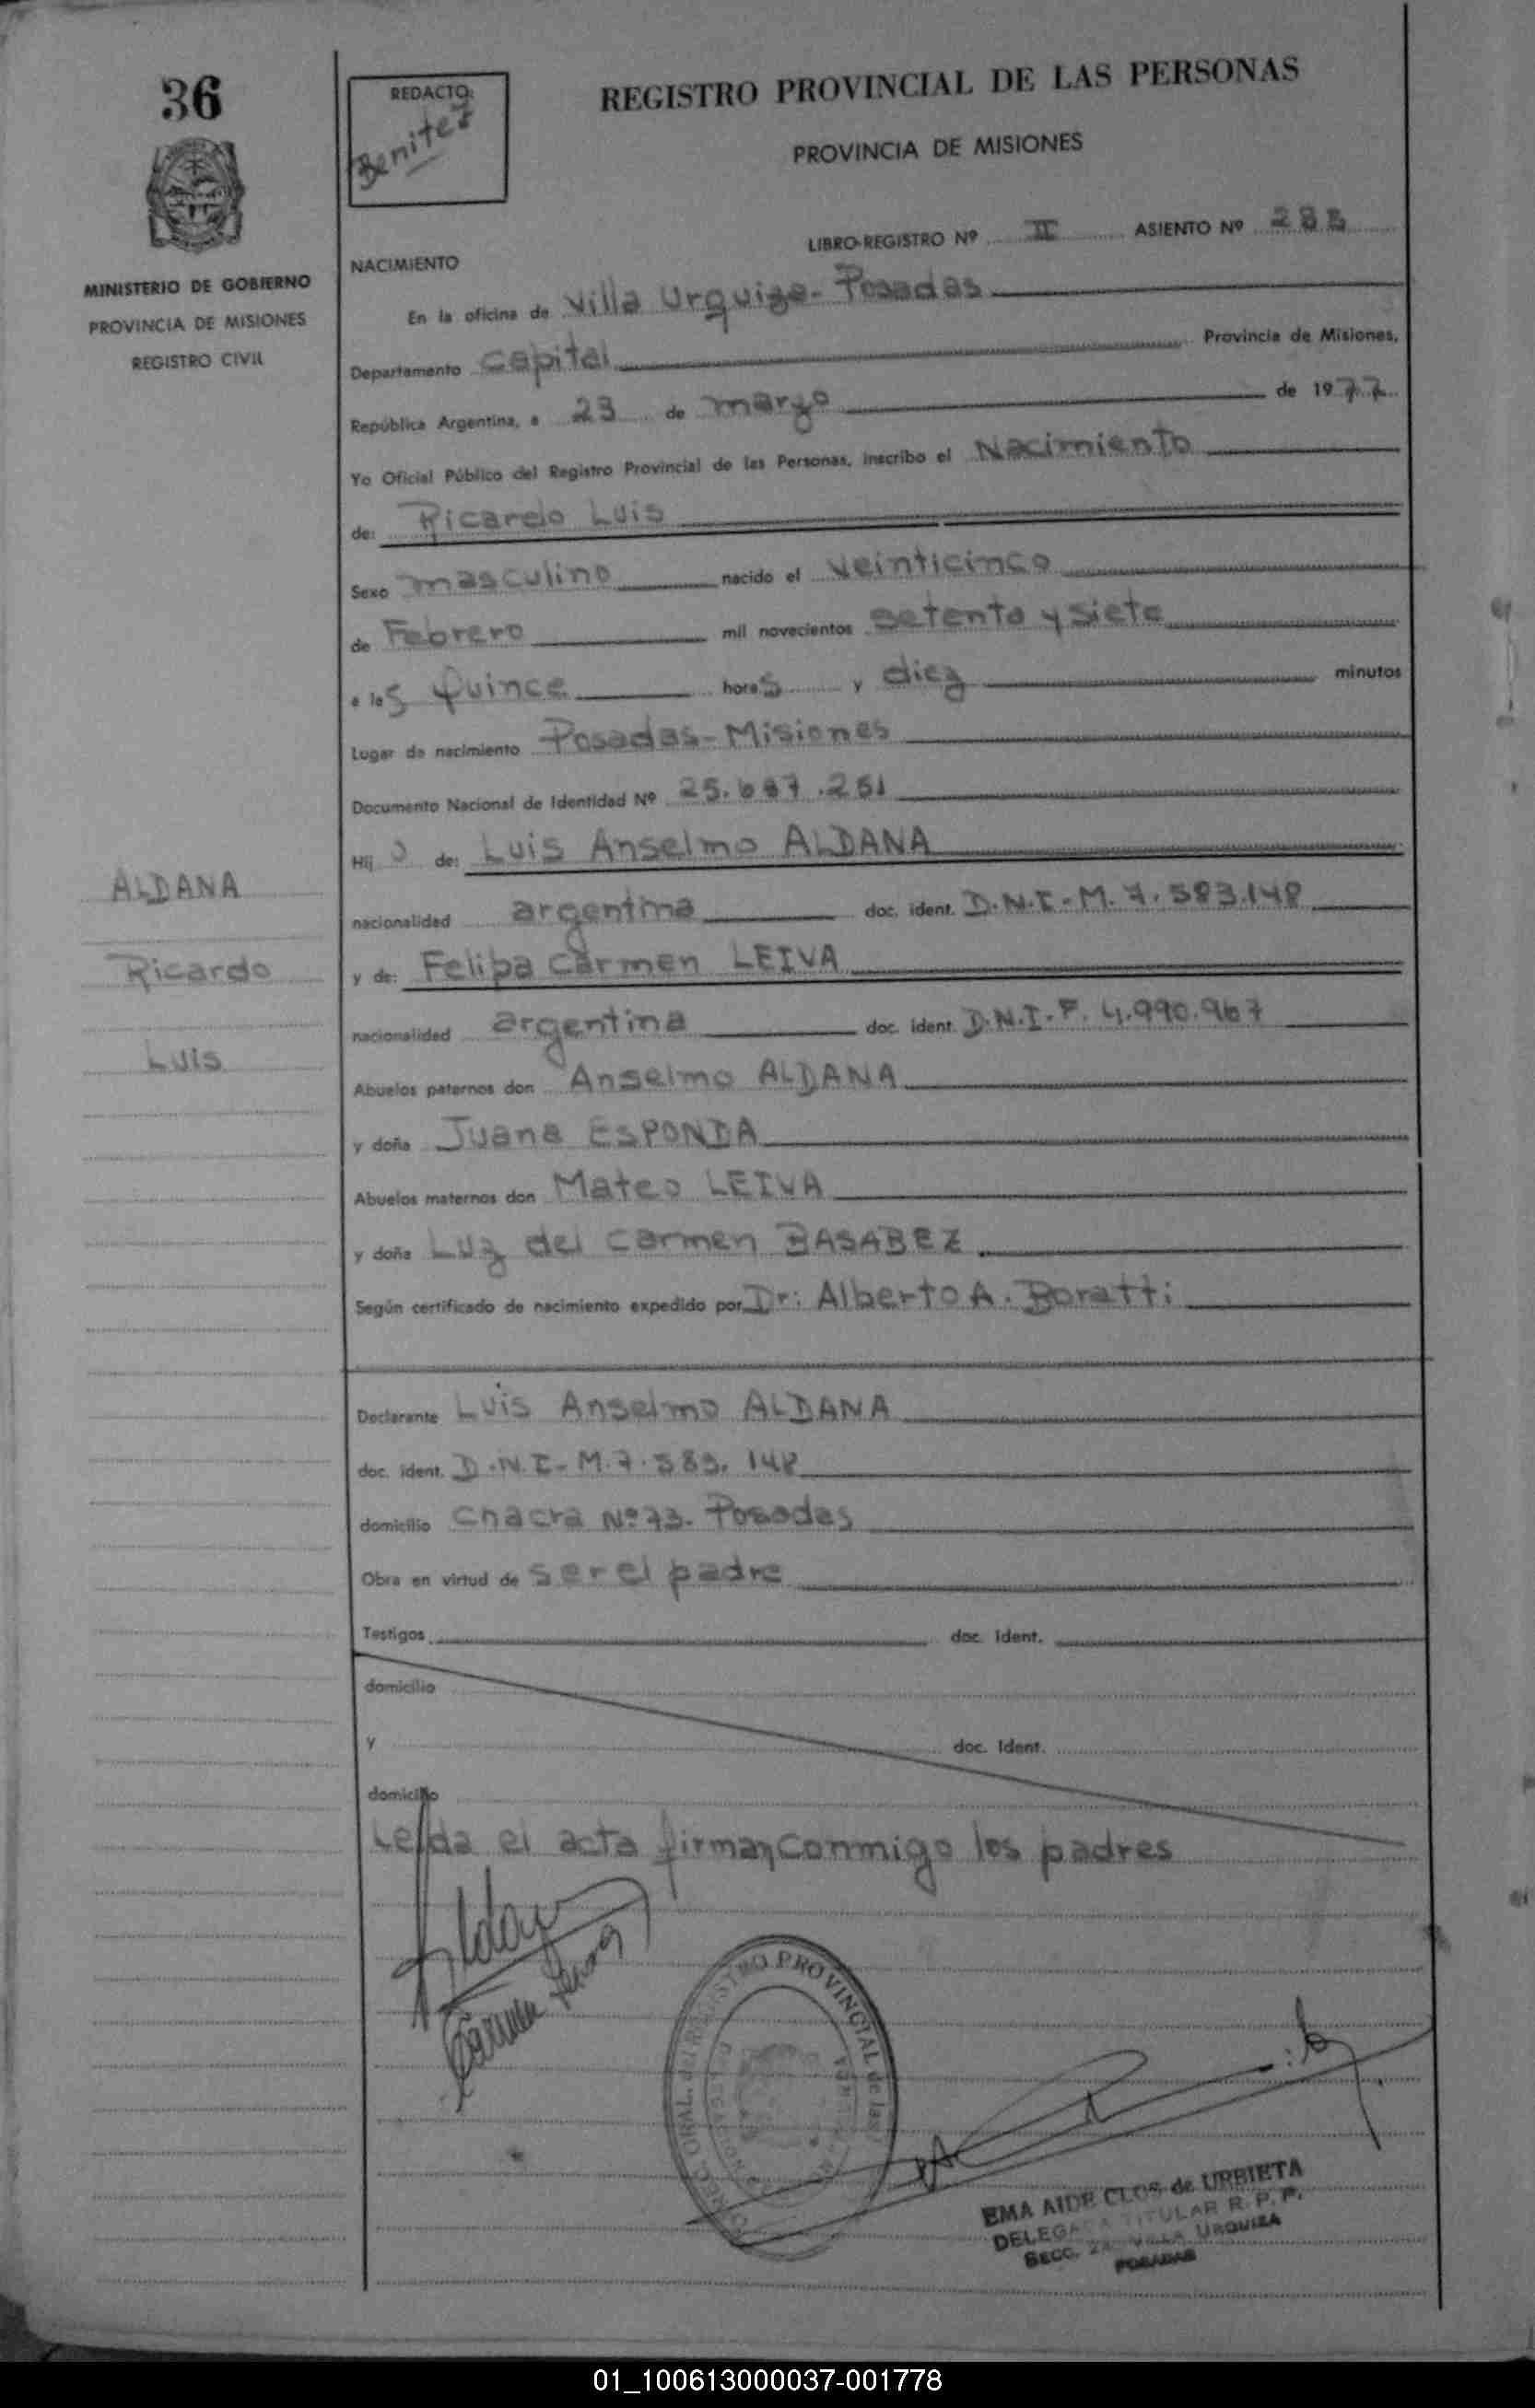 36
MINISTERIO DE GOBIERNO
PROVINCIA DE MISIONES
REGISTRO CIVIL
REDACTO:
Benitez
REGISTRO PROVINCIAL DE LAS PERSONAS
PROVINCIA DE MISIONES
LIBRO-REGISTRO Nº II ASIENTO Nº 285
NACIMIENTO
En la oficina de Villa Urquiza- Posadas
Departamento Capital Provincia de Misiones,
República Argentina, a 23 de marzo de 1977
Yo Oficial Público del Registro Provincial de las Personas, inscribo el Nacimiento
de: Ricardo Luis
Sexo masculino nacido el veinticinco
de Febrero mil novecientos setenta y siete
a las quince horas y diez minutos
Lugar de nacimiento Posadas-Misiones
Documento Nacional de Identidad Nº 25.687.251
Hijo de: Luis Anselmo ALDANA
nacionalidad argentina doc. ident. D.N.I-M. 7.583.148
y de: Felipa Carmen LEIVA
nacionalidad argentina doc. ident. D.N.I-F. 4.990.967
Abuelos paternos don Anselmo ALDANA
y doña Juana ESPONDA
Abuelos maternos don Mateo LEIVA
y doña Luz del Carmen BASABEZ
Según certificado de nacimiento expedido por Dr: Alberto A. Boratti
ALDANA
Ricardo
Luis
Declarante Luis Anselmo ALDANA
doc. ident. D.N.I-M.7.583.148
domicilio Chacra Nº 73. Posadas
Obra en virtud de ser el padre
Testigos doc. Ident.
domicilio
y doc. Ident.
domicilio
Leída el acta firman conmigo los padres
Aldana
Carmen Leiva
REGISTRO PROVINCIAL de las
EMA AIDE CLOS de URBIETA
DELEGADA TITULAR R. P. P.
SECC. 2a. VILLA URQUIZA
POSADAS
01_100613000037-001778